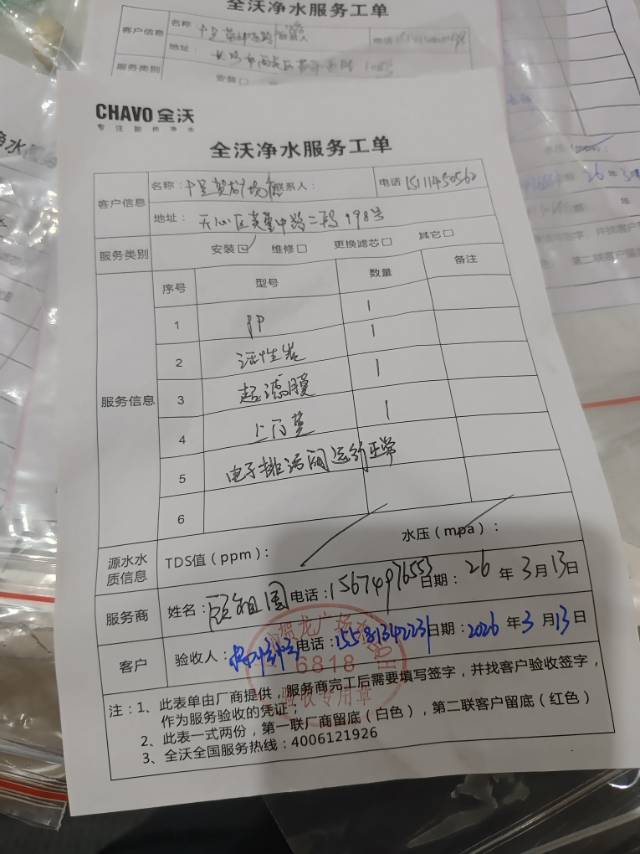 全沃净水服务工单
客户信息
名称：
电话
地址：
服务类别
安装
CHAVO 全沃
专注厨房净水
全沃净水服务工单
客户信息 名称： 联系人： 电话 15111450562
地址：天心区芙蓉中路二段198号
服务类别 安装☑ 维修☐ 更换滤芯☐ 其它☐
服务信息 序号 型号 数量 备注
1 PP 1
2 活性炭 1
3 超滤膜 1
4 1
5 电子排污阀运行正常
6
源水水质信息 TDS值（ppm）： 水压（mpa）：
服务商 姓名：顾祖国 电话：15674976553 日期：26年3月13日
客户 验收人： 电话：15581340223 日期：2026年3月13日
6818
验收专用章
注：1、此表单由厂商提供，服务商完工后需要填写签字，并找客户验收签字，
作为服务验收的凭证；
2、此表一式两份，第一联厂商留底（白色），第二联客户留底（红色）
3、全沃全国服务热线：4006121926